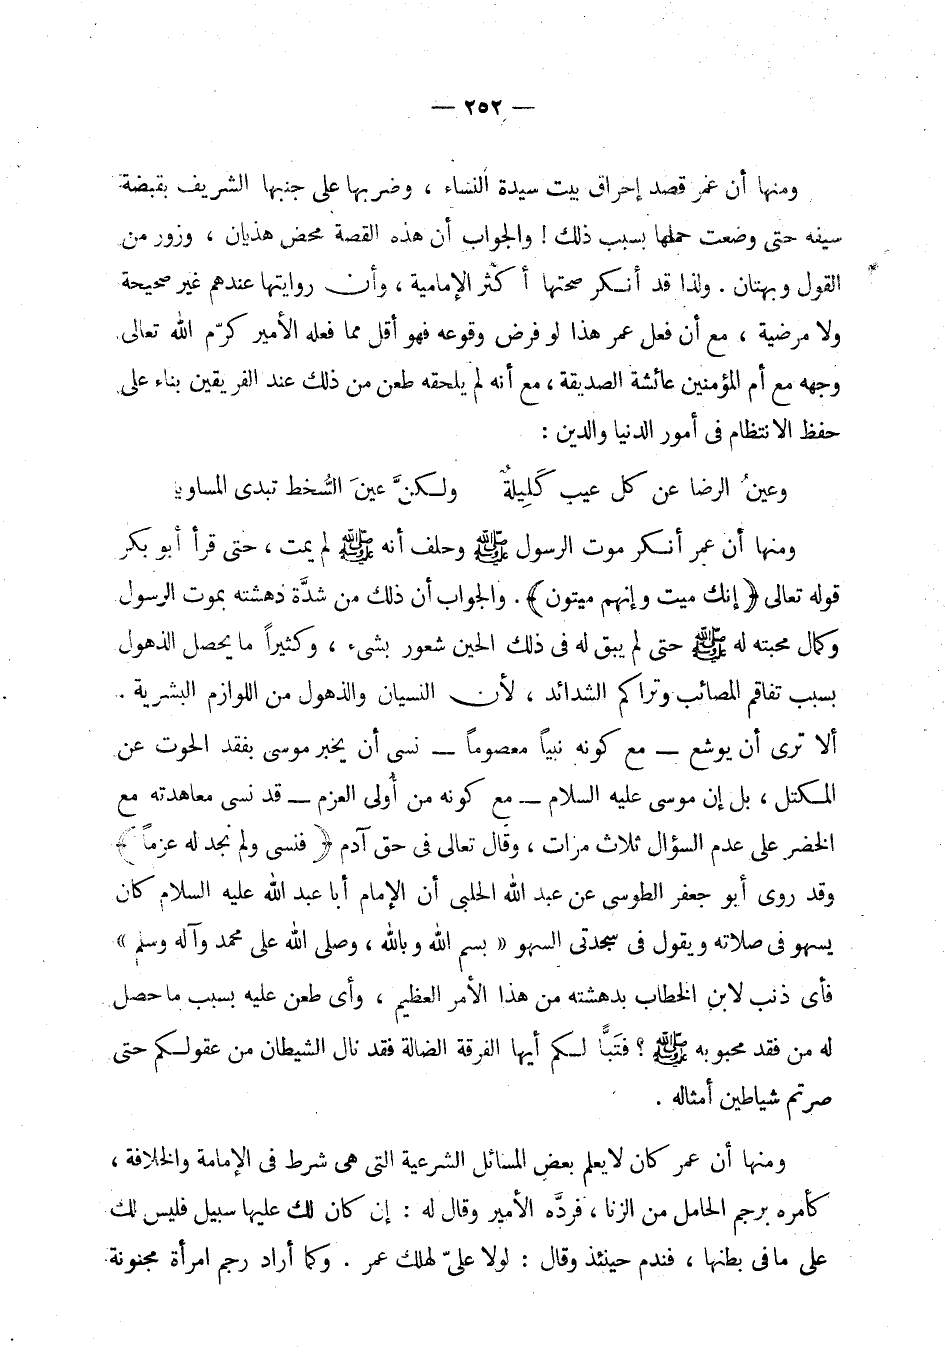 — ٢٥٢ —
ومنها أن عمر قصد إحراق بيت سيدة النساء ، وضربها على جنبها الشريف بقبضة
سيفه حتى وضعت حملها بسبب ذلك ! والجواب أن هذه القصة محض هذيان ، وزور من
القول وبهتان . ولذا قد أنكر صحتها أكثر الإمامية ، وأن روايتها عندهم غير صحيحة
ولا مرضية ، مع أن فعل عمر هذا لو فرض وقوعه فهو أقل مما فعله الأمير كرّم الله تعالى
وجهه مع أم المؤمنين عائشة الصديقة ، مع أنه لم يلحقه طعن من ذلك عند الفريقين بناء على
حفظ الانتظام فى أمور الدنيا والدين :
وعينُ الرضا عن كل عيب كَلِيلةٌ ولكنَّ عينَ السُّخط تبدى المساويا
ومنها أن عمر أنكر موت الرسول ﷺ وحلف أنه ﷺ لم يمت ، حتى قرأ أبو بكر
قوله تعالى ﴿ إنك ميت وإنهم ميتون ﴾ . والجواب أن ذلك من شدَّة دهشته بموت الرسول
وكمال محبته له ﷺ حتى لم يبق له فى ذلك الحين شعور بشىء ، وكثيراً ما يحصل الذهول
بسبب تفاقم المصائب وتراكم الشدائد ، لأن النسيان والذهول من اللوازم البشرية .
ألا ترى أن يوشع — مع كونه نبياً معصوماً — نسى أن يخبر موسى بفقد الحوت عن
المكتل ، بل إن موسى عليه السلام — مع كونه من أُولى العزم — قد نسى معاهدته مع
الخضر على عدم السؤال ثلاث مرات ، وقال تعالى فى حق آدم ﴿ فنسى ولم نجد له عزماً ﴾
وقد روى أبو جعفر الطوسى عن عبد الله الحلبى أن الإمام أبا عبد الله عليه السلام كان
يسهو فى صلاته ويقول فى سجدتى السهو « بسم الله وبالله ، وصلى الله على محمد وآله وسلم »
فأى ذنب لابن الخطاب بدهشته من هذا الأمر العظيم ، وأى طعن عليه بسبب ما حصل
له من فقد محبوبه ﷺ ؟ فتَبًّا لكم أيها الفرقة الضالة فقد نال الشيطان من عقولكم حتى
صرتم شياطين أمثاله .
ومنها أن عمر كان لا يعلم بعض المسائل الشرعية التى هى شرط فى الإمامة والخلافة ،
كأمره برجم الحامل من الزنا ، فردَّه الأمير وقال له : إن كان لك عليها سبيل فليس لك
على ما فى بطنها ، فندم حينئذ وقال : لولا علىّ لهلك عمر . وكما أراد رجم امرأة مجنونة